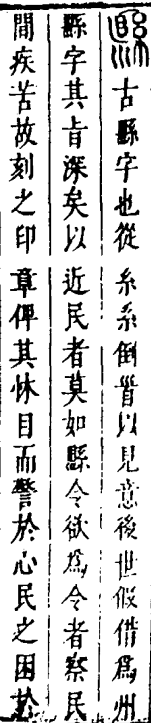 古縣字也從糸系倒首以見意後世假借爲州
縣字其旨深矣以近民者莫如縣令欲爲令者察民
間疾苦故刻之印章俾其怵目而警於心民之困於